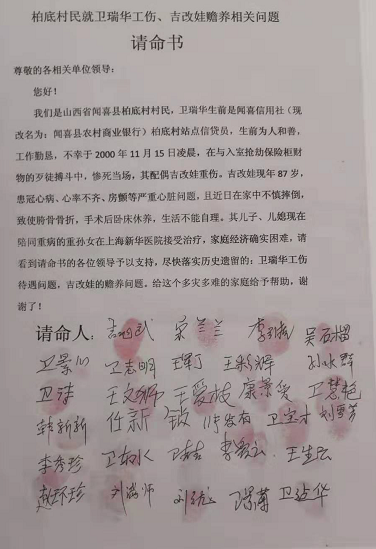 柏底村民就卫瑞华工伤、吉改娃赡养相关问题
请命书
尊敬的各相关单位领导：
您好！
我们是山西省闻喜县柏底村村民，卫瑞华生前是闻喜信用社（现
改名为：闻喜县农村商业银行）柏底村站点信贷员，生前为人和善，
工作勤恳，不幸于 2000 年 11 月 15 日凌晨，在与入室抢劫保险柜财
物的歹徒搏斗中，惨死当场，其配偶吉改娃重伤。吉改娃现年 87 岁，
患冠心病、心率不齐、房颤等严重心脏问题，且近日在家中不慎摔倒，
致使胯骨骨折，手术后卧床休养，生活不能自理。其儿子、儿媳现在
陪同重病的重孙女在上海新华医院接受治疗，家庭经济确实困难，请
看到请命书的各位领导予以支持，尽快落实历史遗留的：卫瑞华工伤
待遇问题，吉改娃的赡养问题。给这个多灾多难的家庭给予帮助，谢
谢了！
请命人： 吴石榴
卫景心 卫志明
王文狮 王爱枝 康景爱 卫慧艳
韩新新 任新 卫宝才 刘雪芳
李秀珍 王生云
赵环珍